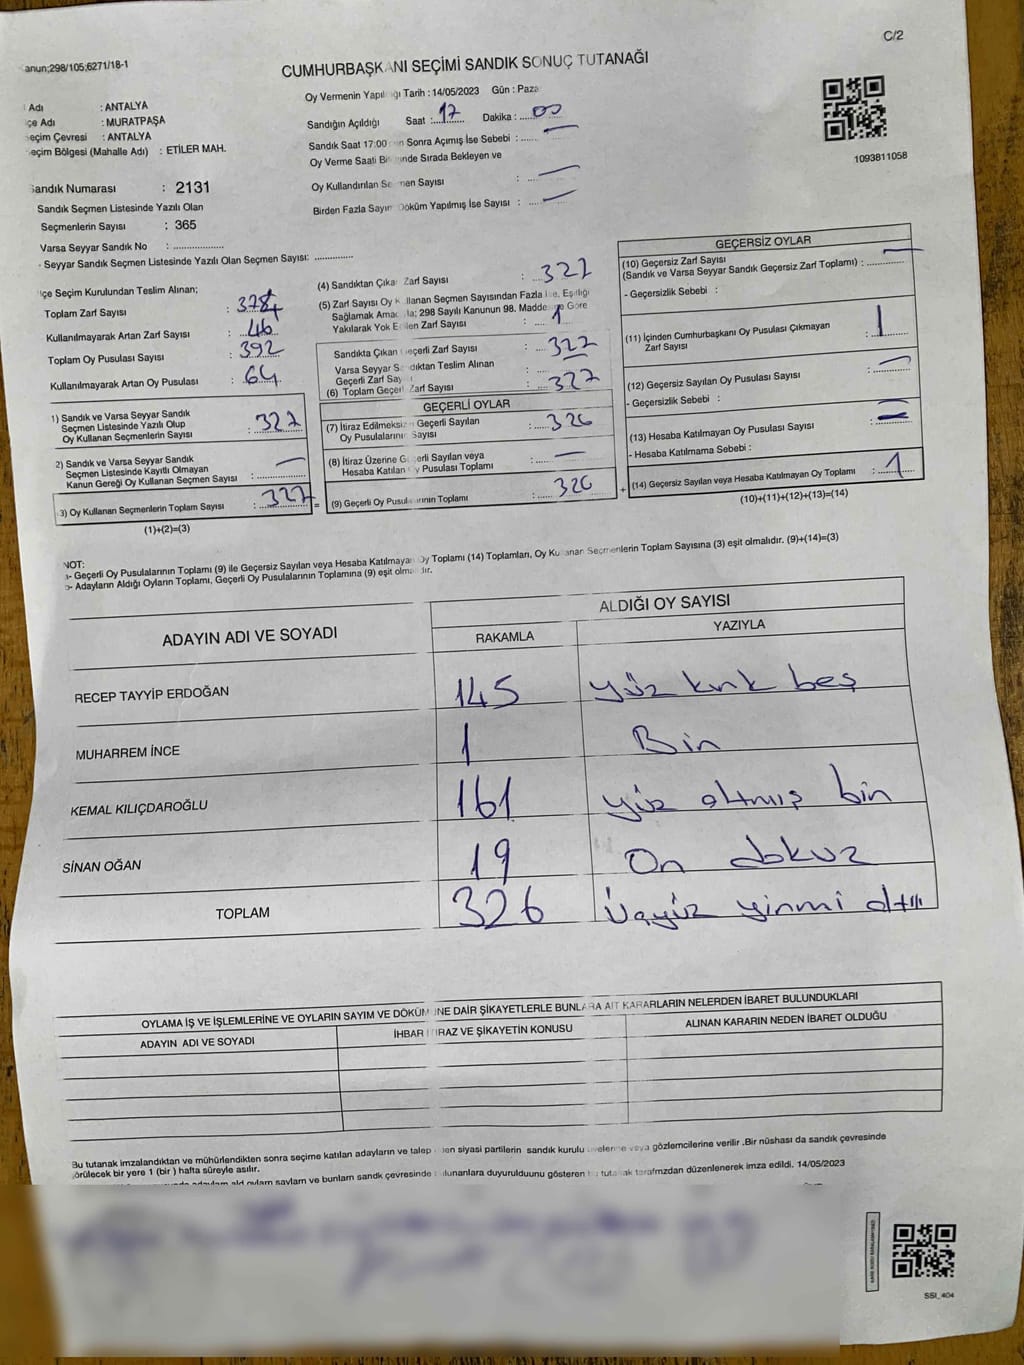 C/2
anun;298/105;6271/18-1
CUMHURBAŞKANI SEÇİMİ SANDIK SONUÇ TUTANAĞI
Adı : ANTALYA
çe Adı : MURATPAŞA
eçim Çevresi : ANTALYA
eçim Bölgesi (Mahalle Adı) : ETİLER MAH.
Sandık Numarası : 2131
Sandık Seçmen Listesinde Yazılı Olan
Seçmenlerin Sayısı : 365
Varsa Seyyar Sandık No : ..................
- Seyyar Sandık Seçmen Listesinde Yazılı Olan Seçmen Sayısı: ..............
Oy Vermenin Yapıldığı Tarih : 14/05/2023 Gün : Paza
Sandığın Açıldığı Saat : 17 Dakika : 00
Sandık Saat 17:00'den Sonra Açımış İse Sebebi : —
Oy Verme Saati Bitiminde Sırada Bekleyen ve
Oy Kullandırılan Seçmen Sayısı : —
Birden Fazla Sayım Döküm Yapılmış İse Sayısı : —
1093811058
İlçe Seçim Kurulundan Teslim Alınan;
Toplam Zarf Sayısı :
Kullanılmayarak Artan Zarf Sayısı : 46
Toplam Oy Pusulası Sayısı : 392
Kullanılmayarak Artan Oy Pusulası : 64
1) Sandık ve Varsa Seyyar Sandık
Seçmen Listesinde Yazılı Olup
Oy Kullanan Seçmenlerin Sayısı : 327
2) Sandık ve Varsa Seyyar Sandık
Seçmen Listesinde Kayıtlı Olmayan
Kanun Gereği Oy Kullanan Seçmen Sayısı : —
3) Oy Kullanan Seçmenlerin Toplam Sayısı : 327 =
(1)+(2)=(3)
(4) Sandıktan Çıkan Zarf Sayısı : 327
(5) Zarf Sayısı Oy Kullanan Seçmen Sayısından Fazla İse, Eşitliği
Sağlamak Amacıyla; 298 Sayılı Kanunun 98. Maddesine Göre
Yakılarak Yok Edilen Zarf Sayısı : 1
Sandıkta Çıkan Geçerli Zarf Sayısı : 327
Varsa Seyyar Sandıktan Teslim Alınan
Geçerli Zarf Sayısı : —
(6) Toplam Geçerli Zarf Sayısı : 327
GEÇERLİ OYLAR
(7) İtiraz Edilmeksizin Geçerli Sayılan
Oy Pusulalarının Sayısı : 326
(8) İtiraz Üzerine Geçerli Sayılan veya
Hesaba Katılan Oy Pusulası Toplamı : —
(9) Geçerli Oy Pusulalarının Toplamı : 326 +
GEÇERSİZ OYLAR
(10) Geçersiz Zarf Sayısı
(Sandık ve Varsa Seyyar Sandık Geçersiz Zarf Toplamı) : —
- Geçersizlik Sebebi :
(11) İçinden Cumhurbaşkanı Oy Pusulası Çıkmayan
Zarf Sayısı : 1
(12) Geçersiz Sayılan Oy Pusulası Sayısı : —
- Geçersizlik Sebebi :
(13) Hesaba Katılmayan Oy Pusulası Sayısı : —
- Hesaba Katılmama Sebebi :
(14) Geçersiz Sayılan veya Hesaba Katılmayan Oy Toplamı : 1
(10)+(11)+(12)+(13)=(14)
NOT:
a- Geçerli Oy Pusulalarının Toplamı (9) ile Geçersiz Sayılan veya Hesaba Katılmayan Oy Toplamı (14) Toplamları, Oy Kullanan Seçmenlerin Toplam Sayısına (3) eşit olmalıdır. (9)+(14)=(3)
b- Adayların Aldığı Oyların Toplamı, Geçerli Oy Pusulalarının Toplamına (9) eşit olmalıdır.
ADAYIN ADI VE SOYADI ALDIĞI OY SAYISI
RAKAMLA YAZIYLA
RECEP TAYYİP ERDOĞAN 145 yüz kırk beş
MUHARREM İNCE 1 Bir
KEMAL KILIÇDAROĞLU 161 yüz altmış bir
SİNAN OĞAN 19 On dokuz
TOPLAM 326 Üçyüz yirmi altı
OYLAMA İŞ VE İŞLEMLERİNE VE OYLARIN SAYIM VE DÖKÜMÜNE DAİR ŞİKAYETLERLE BUNLARA AİT KARARLARIN NELERDEN İBARET BULUNDUKLARI
ADAYIN ADI VE SOYADI İHBAR İTİRAZ VE ŞİKAYETİN KONUSU ALINAN KARARIN NEDEN İBARET OLDUĞU
Bu tutanak imzalandıktan ve mühürlendikten sonra seçime katılan adayların ve talep eden siyasi partilerin sandık kurulu üyelerine veya gözlemcilerine verilir .Bir nüshası da sandık çevresinde
görülecek bir yere 1 (bir ) hafta süreyle asılır.
sandık çevresinde bulunanlara duyurulduunu gösteren bu tutanak tarafmzdan düzenlenerek imza edildi. 14/05/2023
SSI_404